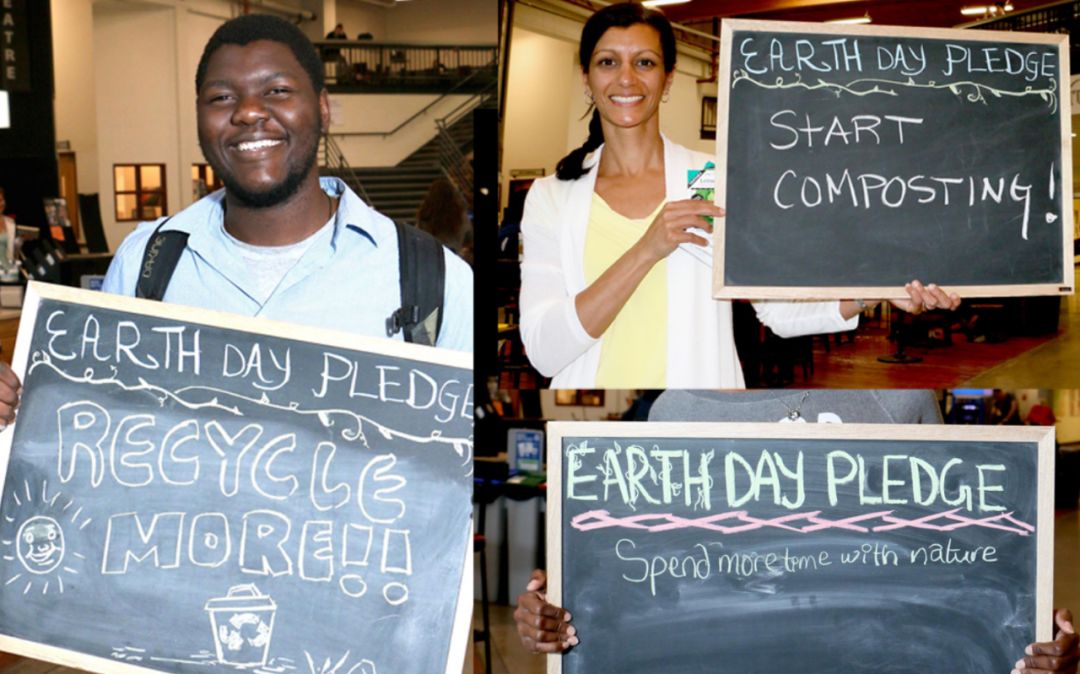 EATRE
DAKINE
EARTH DAY PLEDGE
RECYCLE
MORE!!
EARTH DAY PLEDGE
START
COMPOSTING!
EARTH DAY PLEDGE
Spend more time with nature